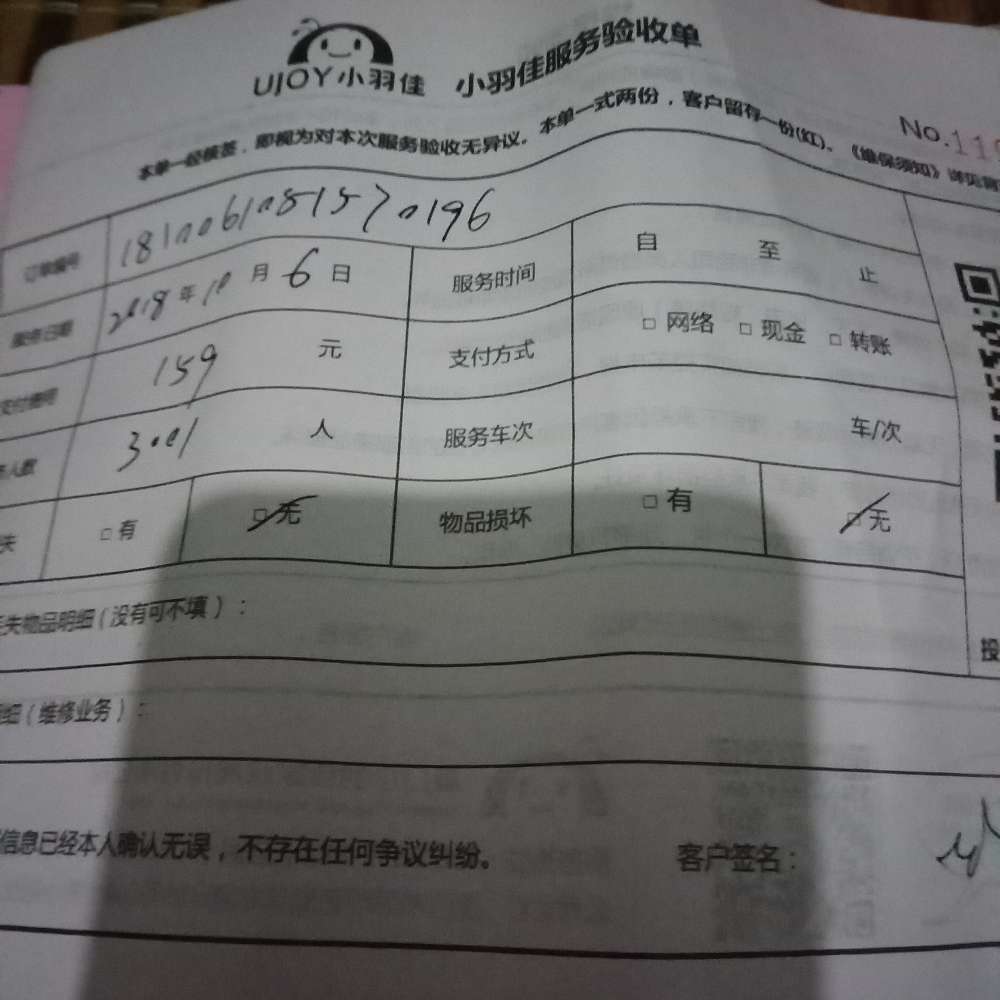 UJOY小羽佳 小羽佳服务验收单
本单一经核签，即视为对本次服务验收无异议。本单一式两份，客户留存一份(红)。《维保须知》详见背
No.11
订单编号
服务日期 2018年10月6日 服务时间 自 至 止
支付费用 159 元 支付方式 □ 网络 □ 现金 □ 转账
人数 人 服务车次 车/次
失 □ 有 □ 无 物品损坏 □ 有 □ 无
失物品明细（没有可不填）：
细（维修业务）：
信息已经本人确认无误，不存在任何争议纠纷。 客户签名：
投